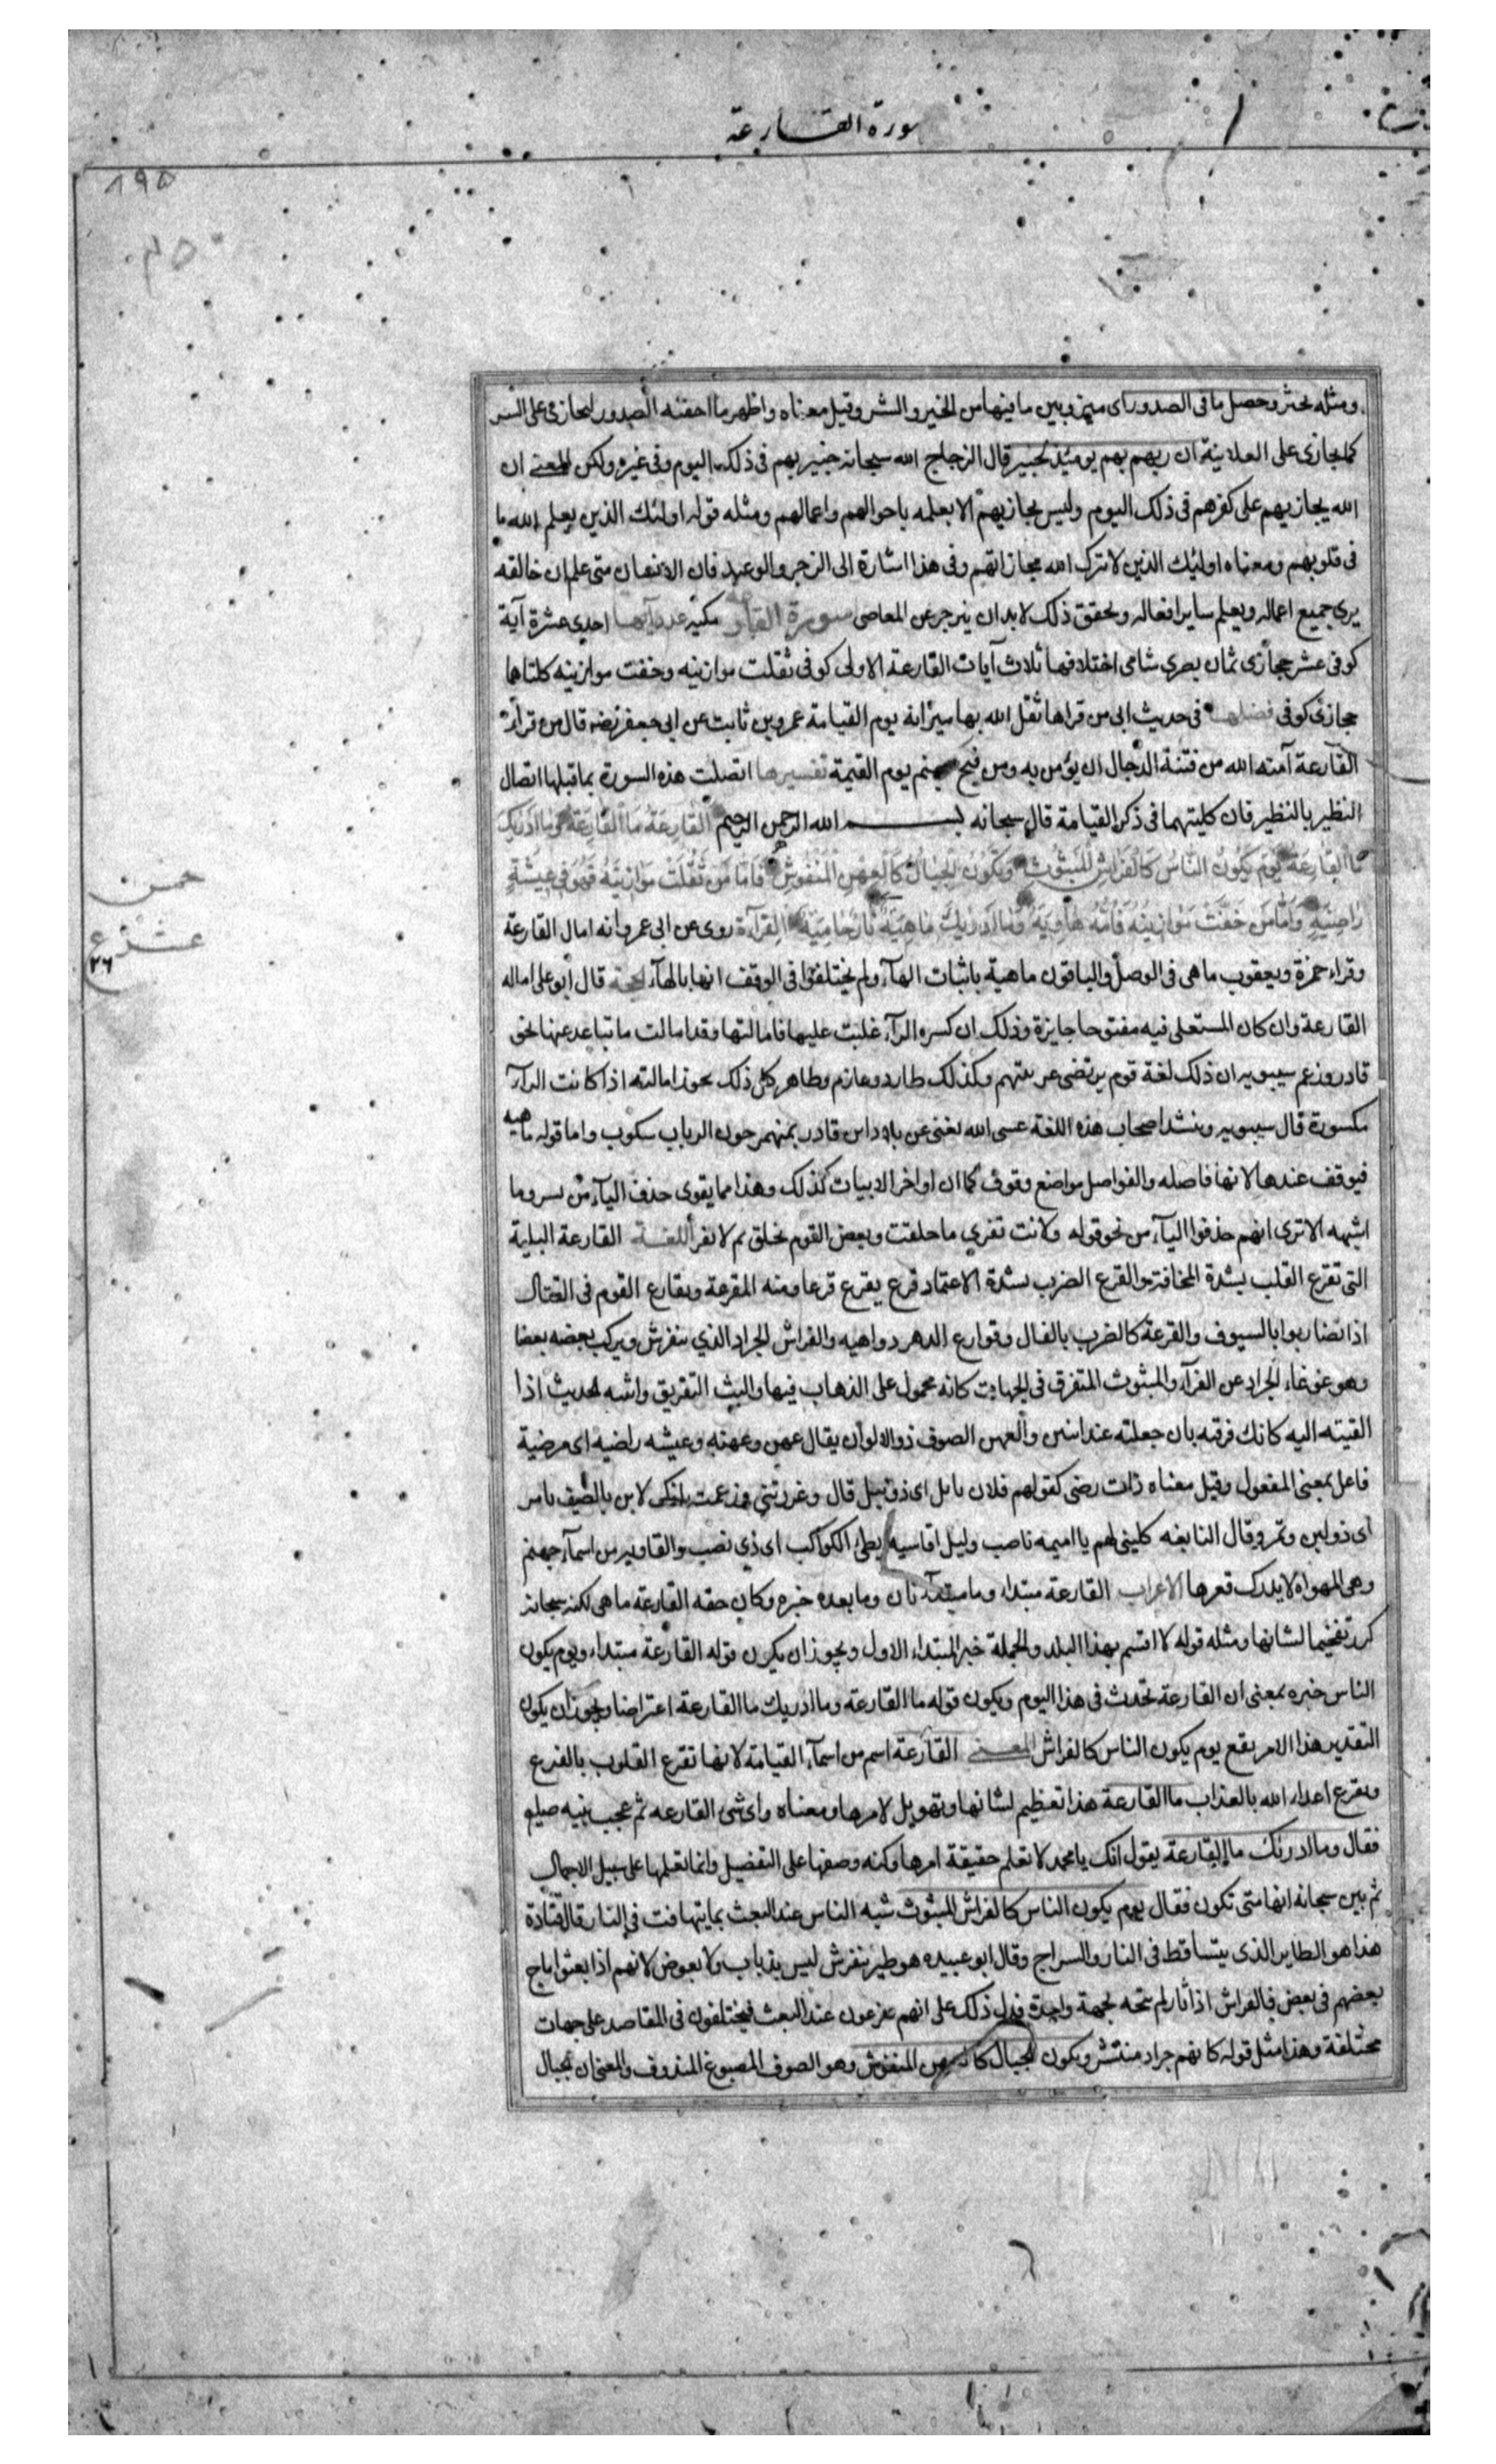 سورة القارعة
٨٩٥
ومثله بحثر وحصل ما فى الصدور اى ميز وبين ما فيها من الخير والشر وقيل معناه واظهر ما اخفته الصدور ليجازى على السر
كما يجازى على العلانية ان ربهم بهم يومئذ لخبير قال الزجاج الله سبحانه خبير بهم فى ذلك اليوم وفى غيره ولكن المعنى ان
الله يجازيهم على كفرهم فى ذلك اليوم وليس يجازيهم الا بعلمه باحوالهم واعمالهم ومثله قوله اولئك الذين يعلم الله ما
فى قلوبهم ومعناه اولئك الذين لا نترك الله مجازاتهم وفى هذا اشارة الى الزجر والوعيد فان الانسان متى علم ان خالقه
يرى جميع اعماله ويعلم ساير افعاله وتحقق ذلك لابد ان ينزجر عن المعاصى سورة القارعة مكية عدد آيها احدى عشرة آية
كوفى عشر حجازى ثمان بصرى شامى اختلافها ثلاث آيات القارعة الاولى كوفى ثقلت موازينه وخفت موازينه كلتاهما
حجازى كوفى فضلها فى حديث ابى من قراها ثقل الله بها ميزانه يوم القيامة عمرو بن ثابت عن ابى جعفر قال من قرأ
القارعة آمنه الله من فتنة الدجال ان يؤمن به ومن فيح جهنم يوم القيمة تفسيرها اتصلت هذه السورة بما قبلها اتصال
النظير بالنظير فان كليتهما فى ذكر القيامة قال سبحانه بسم الله الرحمن الرحيم القَارِعَةُ مَا القَارِعَةُ وَمَا اَدْرٰيكَ
مَا القَارِعَةُ يَوْمَ يَكُونُ النَّاسُ كَالْفَرَاشِ الْمَبْثُوثِ وَتَكُونُ الْجِبَالُ كَالْعِهْنِ الْمَنْفُوشِ فَاَمَّا مَنْ ثَقُلَتْ مَوَازِينُهُ فَهُوَ فِى عِيشَةٍ
رَاضِيَةٍ وَاَمَّا مَنْ خَفَّتْ مَوَازِينُهُ فَاُمُّهُ هَاوِيَةٌ وَمَا اَدْرٰيكَ مَاهِيَهْ نَارٌ حَامِيَةٌ القراءة روى عن ابى عمرو انه امال القارعة
وقراء حمزة ويعقوب ما هى فى الوصل والباقون ماهية باثبات الهآء ولم يختلفوا فى الوقف انها بالهآء الحجة قال ابو على اماله
القارعة وان كان المستعلى فيه مفتوحا جايزة وذلك ان كسره الرآء غلبت عليها فامالتها وقد امالت ما تباعد عنها نحو
قادر وزعم سيبويه ان ذلك لغة قوم يرتضى عربيتهم وكذلك طارد وعازم وطاهر كل ذلك يجوز امالته اذا كانت الرآء
مكسورة قال سيبويه وينشد اصحاب هذه اللغة عسى الله يغنى عن بلاد ابن قادر بمنهمر جون الرباب سكوب واما قوله ماهيه
فيوقف عندها لانها فاصله والفواصل مواضع وقوف كما ان اواخر الابيات كذلك وهذا مما يقوى حذف اليآء من يسر وما
اشبهه الا ترى انهم حذفوا اليآء من نحو قوله ولانت تفرى ما خلقت وبعض القوم يخلق ثم لا يفر اللغة القارعة البلية
التى تقرع القلب بشدة المخافة والقرع الضرب بشدة الاعتماد قرع يقرع قرعا ومنه المقرعة وتقارع القوم فى القتال
اذا تضاربوا بالسيوف والقرعة كالضرب بالفال وقوارع الدهر دواهيه والفراش الجراد الذي ينفرش ويركب بعضه بعضا
وهو غوغاء الجراد عن الفراء والمبثوث المتفرق فى الجهات كانه محمول على الذهاب فيها والبث التفريق وابثثته الحديث اذا
القيته اليه كانك فرقته بان جعلته عند اثنين والعهن الصوف ذو الالوان يقال عهن وعهنة وعيشه راضيه اى مرضية
فاعل بمعنى المفعول وقيل معناه ذات رضى كقولهم فلان نابل اى ذو نبل قال وغررتنى وزعمت انك لابن بالصيف تامر
اى ذو لبن وتمر وقال النابغه كلينى لهم يا اميمه ناصب وليل اقاسيه بطئ الكواكب اى ذى نصب والهاوية من اسمآء جهنم
وهى المهواه لا يدرك قعرها الاعراب القارعة مبتدا وما مبتدآء ثان وما بعده خبره وكان حقه القارعة ما هى لكنه سبحانه
كرر تفخيما لشانها ومثله قوله لا اقسم بهذا البلد والجملة خبر المبتداء الاول ويجوز ان يكون قوله القارعة مبتداء ويوم يكون
الناس خبره بمعنى ان القارعة تحدث فى هذا اليوم ويكون قوله ما القارعة وما ادريك ما القارعة اعتراضا ويجوز ان يكون
التقدير هذا الامر يقع يوم يكون الناس كالفراش المعنى القارعة اسم من اسمآء القيامة لانها تقرع القلوب بالفزع
وتقرع اعداء الله بالعذاب ما القارعة هذا تعظيم لشانها وتهويل لامرها ومعناه واى شى القارعه ثم عجب نبيه صلعم
فقال وما ادريك ما القارعة يقول انك يا محمد لا تعلم حقيقة امرها وكنه وصفها على التفصيل وانما تعلمها على سبيل الاجمال
ثم بين سبحانه انها متى تكون فقال يوم يكون الناس كالفراش المبثوث شبه الناس عند البعث بما يتهافت فى النار قال قتادة
هذا هو الطاير الذى يتساقط فى النار والسراج وقال ابو عبيده هو طير ينفرش ليس بذباب ولا بعوض لانهم اذا بعثوا ماج
بعضهم فى بعض فالفراش اذا ثار لم يتجه لجهة واحدة فدل ذلك على انهم يفزعون عند البعث فيختلفون فى المقاصد على جهات
مختلفة وهذا مثل قوله كانهم جراد منتشر ويكون الجبال كالعهن المنفوش وهو الصوف المصبوغ المندوف والمعنى ان الجبال
خمس
عشر ع
٢٦